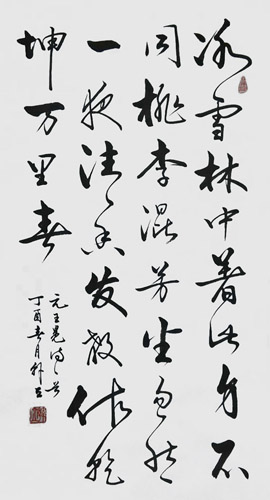 冰雪林中著此身不
同桃李混芳尘忽然
一夜清香发散作乾
坤万里春
元王冕诗一首
丁酉春月